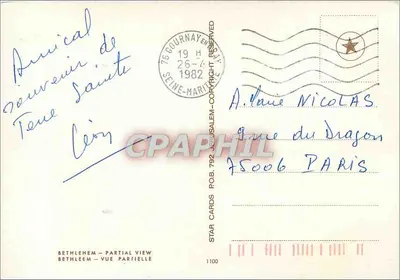 Amical
souvenir de
Terre Sainte
Léon
BETHLEHEM – PARTIAL VIEW
BETHLEEM – VUE PARTIELLE
STAR CARDS P.O.B. 792 JERUSALEM-COPYRIGHT RESERVED
1100
76 GOURNAY EN BRAY
19 H
26-4
1982
SEINE-MARITIME
A. Marie NICOLAS
rue du Dragon
75006 PARIS
CPAPHIL